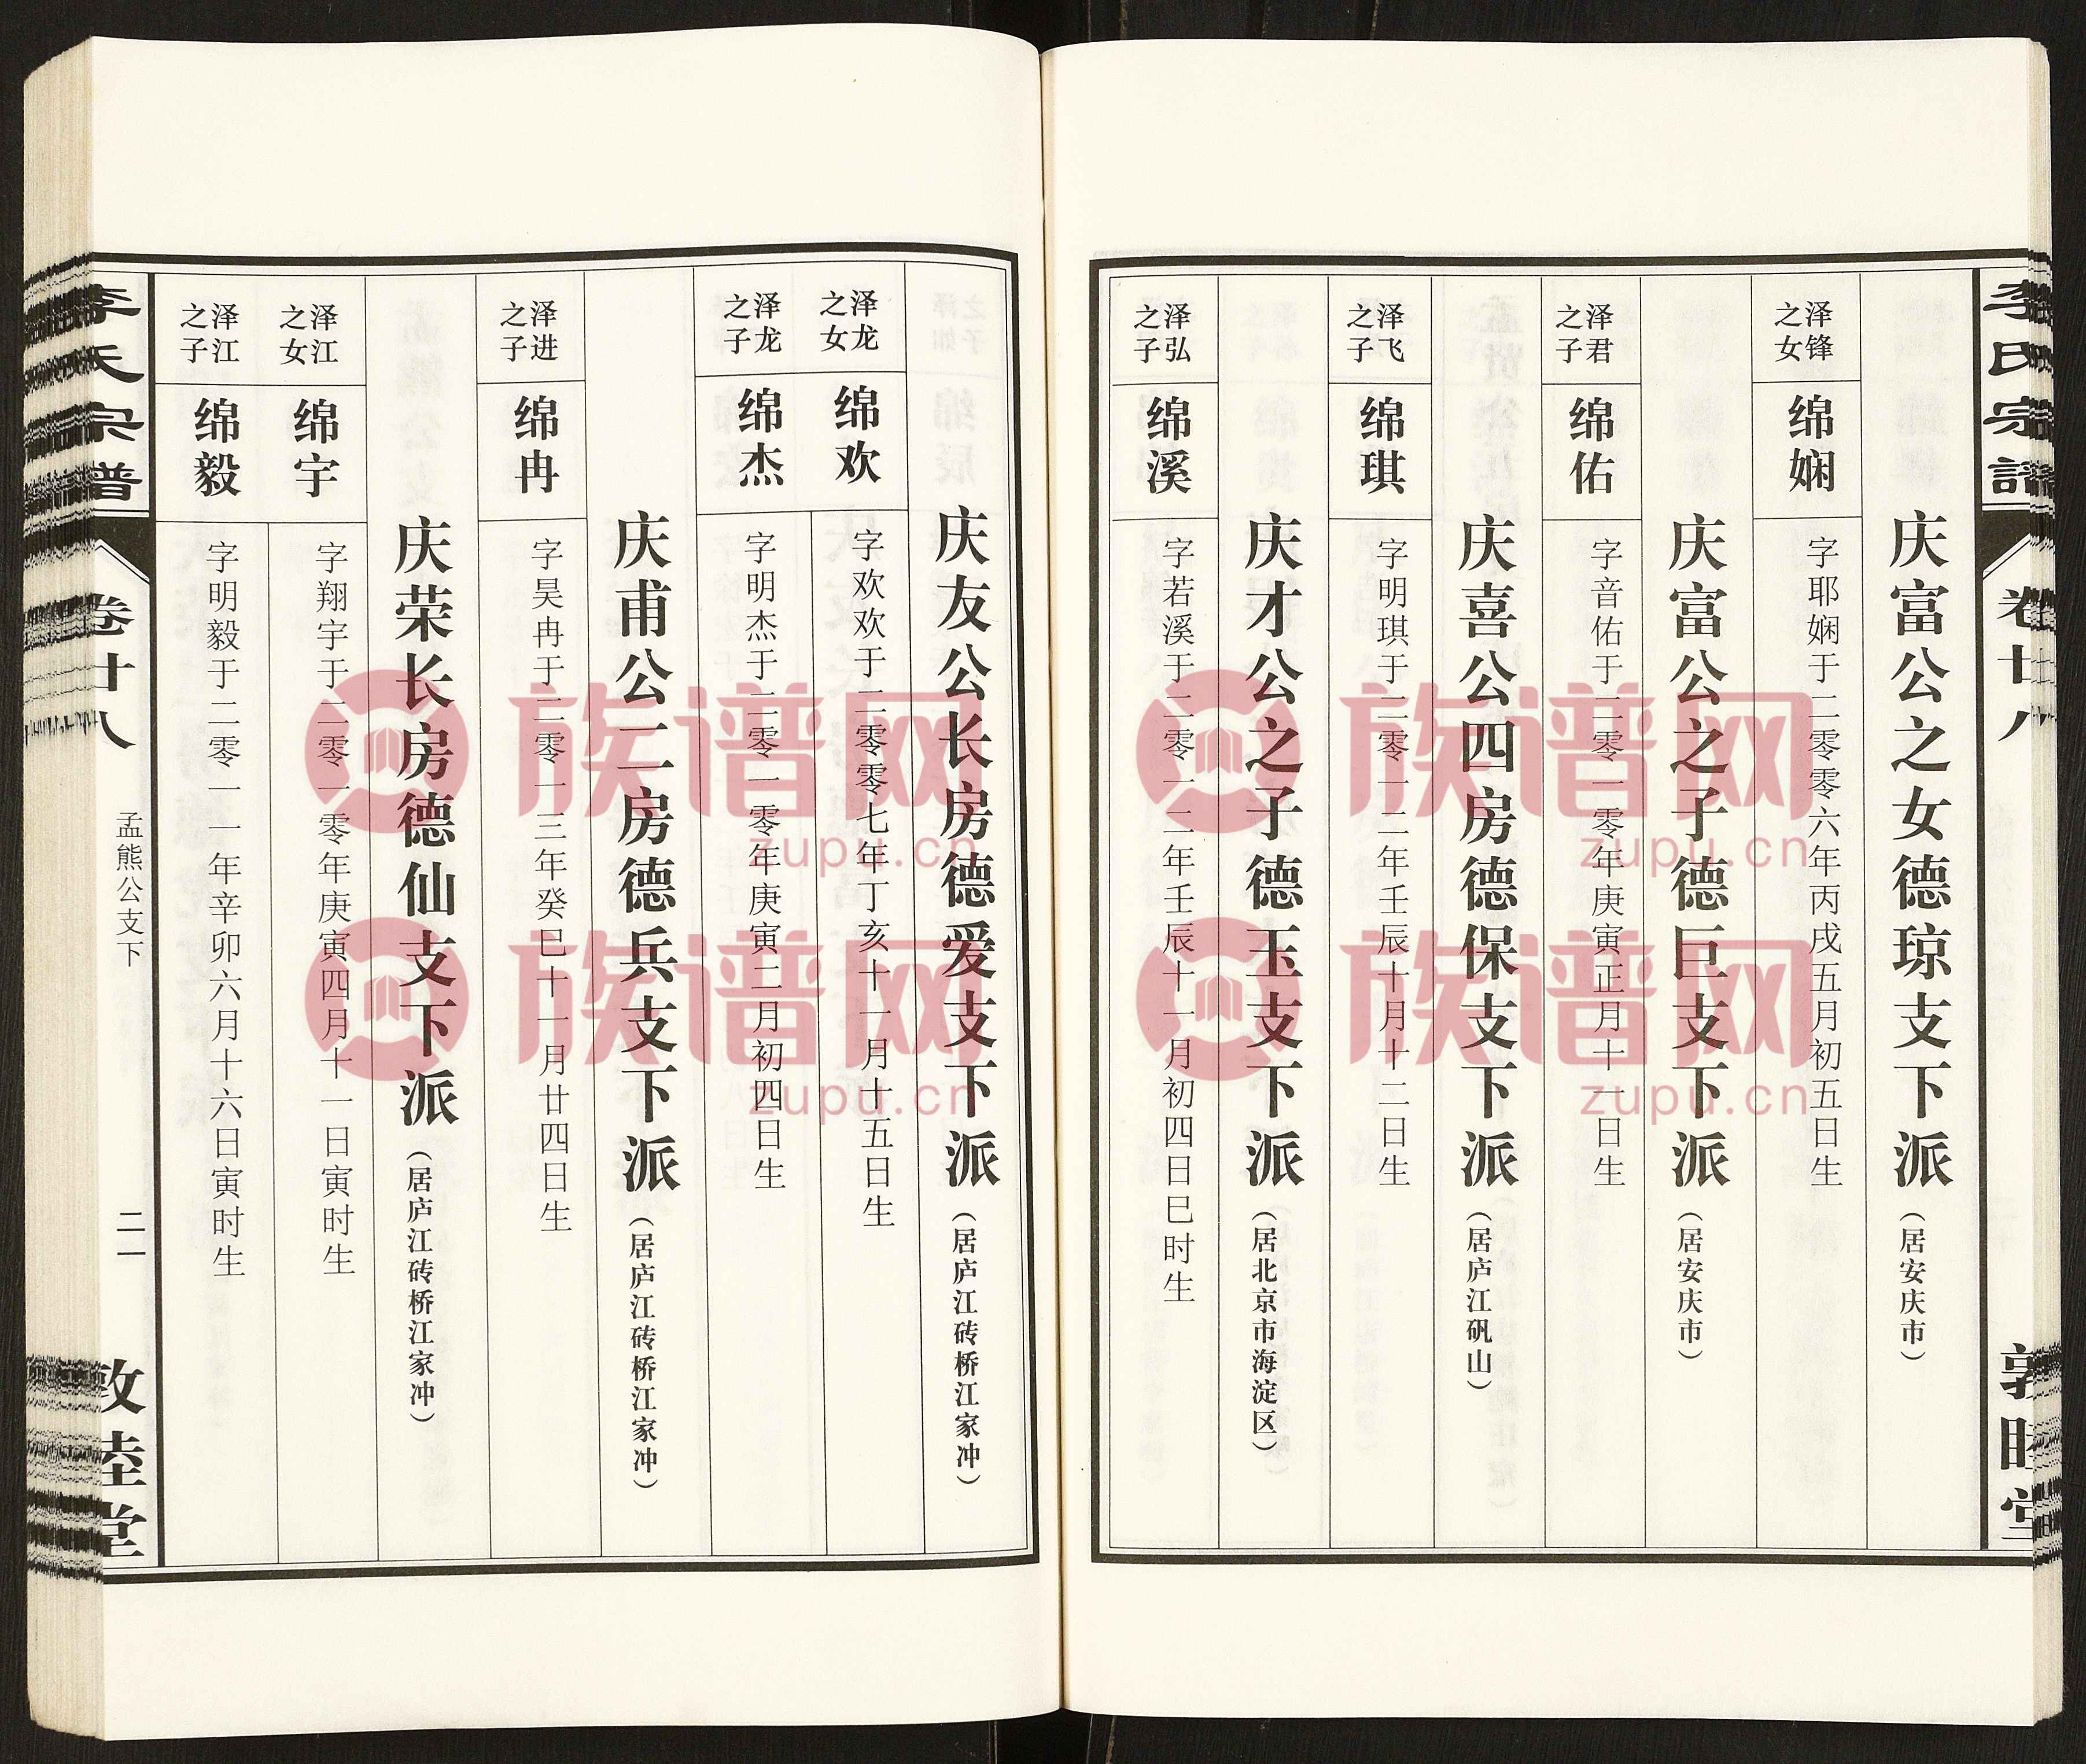 李氏宗谱
卷廿八
敦睦堂
庆富公之女德琼支下派(居安庆市)
泽锋之女
绵娴
字耶娴于二零零六年丙戌五月初五日生
庆富公之子德巨支下派(居安庆市)
泽君之子
绵佑
字音佑于二零一零年庚寅正月十一日生
庆喜公四房德保支下派(居庐江矾山)
泽飞之子
绵琪
字明琪于二零一二年壬辰十月十二日生
庆才公之子德玉支下派(居北京市海淀区)
泽弘之子
绵溪
字若溪于二零一二年壬辰十一月初四日巳时生
庆友公长房德爱支下派(居庐江砖桥江家冲)
泽龙之女
绵欢
字欢欢于二零零七年丁亥十一月十五日生
泽龙之子
绵杰
字明杰于二零一零年庚寅二月初四日生
庆甫公二房德兵支下派(居庐江砖桥江家冲)
泽进之子
绵冉
字昊冉于二零一三年癸巳十一月廿四日生
庆荣长房德仙支下派(居庐江砖桥江家冲)
泽江之女
绵宇
字翔宇于二零一零年庚寅四月十一日寅时生
泽江之子
绵毅
字明毅于二零一一年辛卯六月十六日寅时生
李氏宗谱
卷廿八
孟熊公支下
二一
敦睦堂
族谱网
zupu.cn
族谱网
zupu.cn
族谱网
zupu.cn
族谱网
zupu.cn